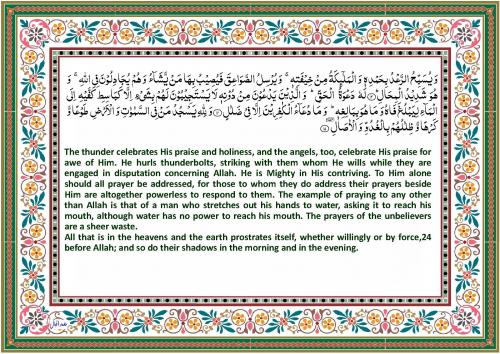 وَ يُسَبِّحُ الرَّعْدُ بِحَمْدِهٖ وَ الْمَلٰٓىِٕكَةُ مِنْ خِيْفَتِهٖ ۚ وَ يُرْسِلُ الصَّوَاعِقَ فَيُصِيْبُ بِهَا مَنْ يَّشَآءُ وَ هُمْ يُجَادِلُوْنَ فِي اللّٰهِ ۚ وَ
هُوَ شَدِيْدُ الْمِحَالِ لَهٗ دَعْوَةُ الْحَقِّ ؕ وَ الَّذِيْنَ يَدْعُوْنَ مِنْ دُوْنِهٖ لَا يَسْتَجِيْبُوْنَ لَهُمْ بِشَيْءٍ اِلَّا كَبَاسِطِ كَفَّيْهِ اِلَى
الْمَآءِ لِيَبْلُغَ فَاهُ وَ مَا هُوَ بِبَالِغِهٖ ؕ وَ مَا دُعَآءُ الْكٰفِرِيْنَ اِلَّا فِيْ ضَلٰلٍ وَ لِلّٰهِ يَسْجُدُ مَنْ فِي السَّمٰوٰتِ وَ الْاَرْضِ طَوْعًا وَّ
كَرْهًا وَّ ظِلٰلُهُمْ بِالْغُدُوِّ وَ الْاٰصَالِ
The thunder celebrates His praise and holiness, and the angels, too, celebrate His praise for
awe of Him. He hurls thunderbolts, striking with them whom He wills while they are
engaged in disputation concerning Allah. He is Mighty in His contriving. To Him alone
should all prayer be addressed, for those to whom they do address their prayers beside
Him are altogether powerless to respond to them. The example of praying to any other
than Allah is that of a man who stretches out his hands to water, asking it to reach his
mouth, although water has no power to reach his mouth. The prayers of the unbelievers
are a sheer waste.
All that is in the heavens and the earth prostrates itself, whether willingly or by force,24
before Allah; and so do their shadows in the morning and in the evening.